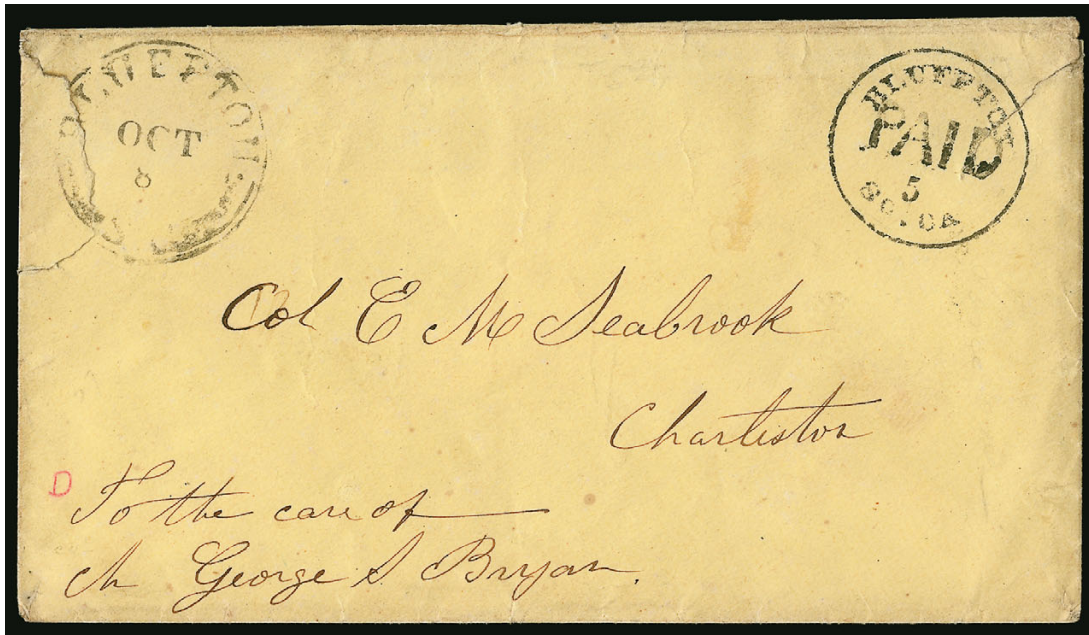 BLUFFTON
OCT
8
S.C.
BLUFFTON
PAID
5
SO. CA.
Col E M Seabrook
Charleston
D
To the care of
M George S Bryan